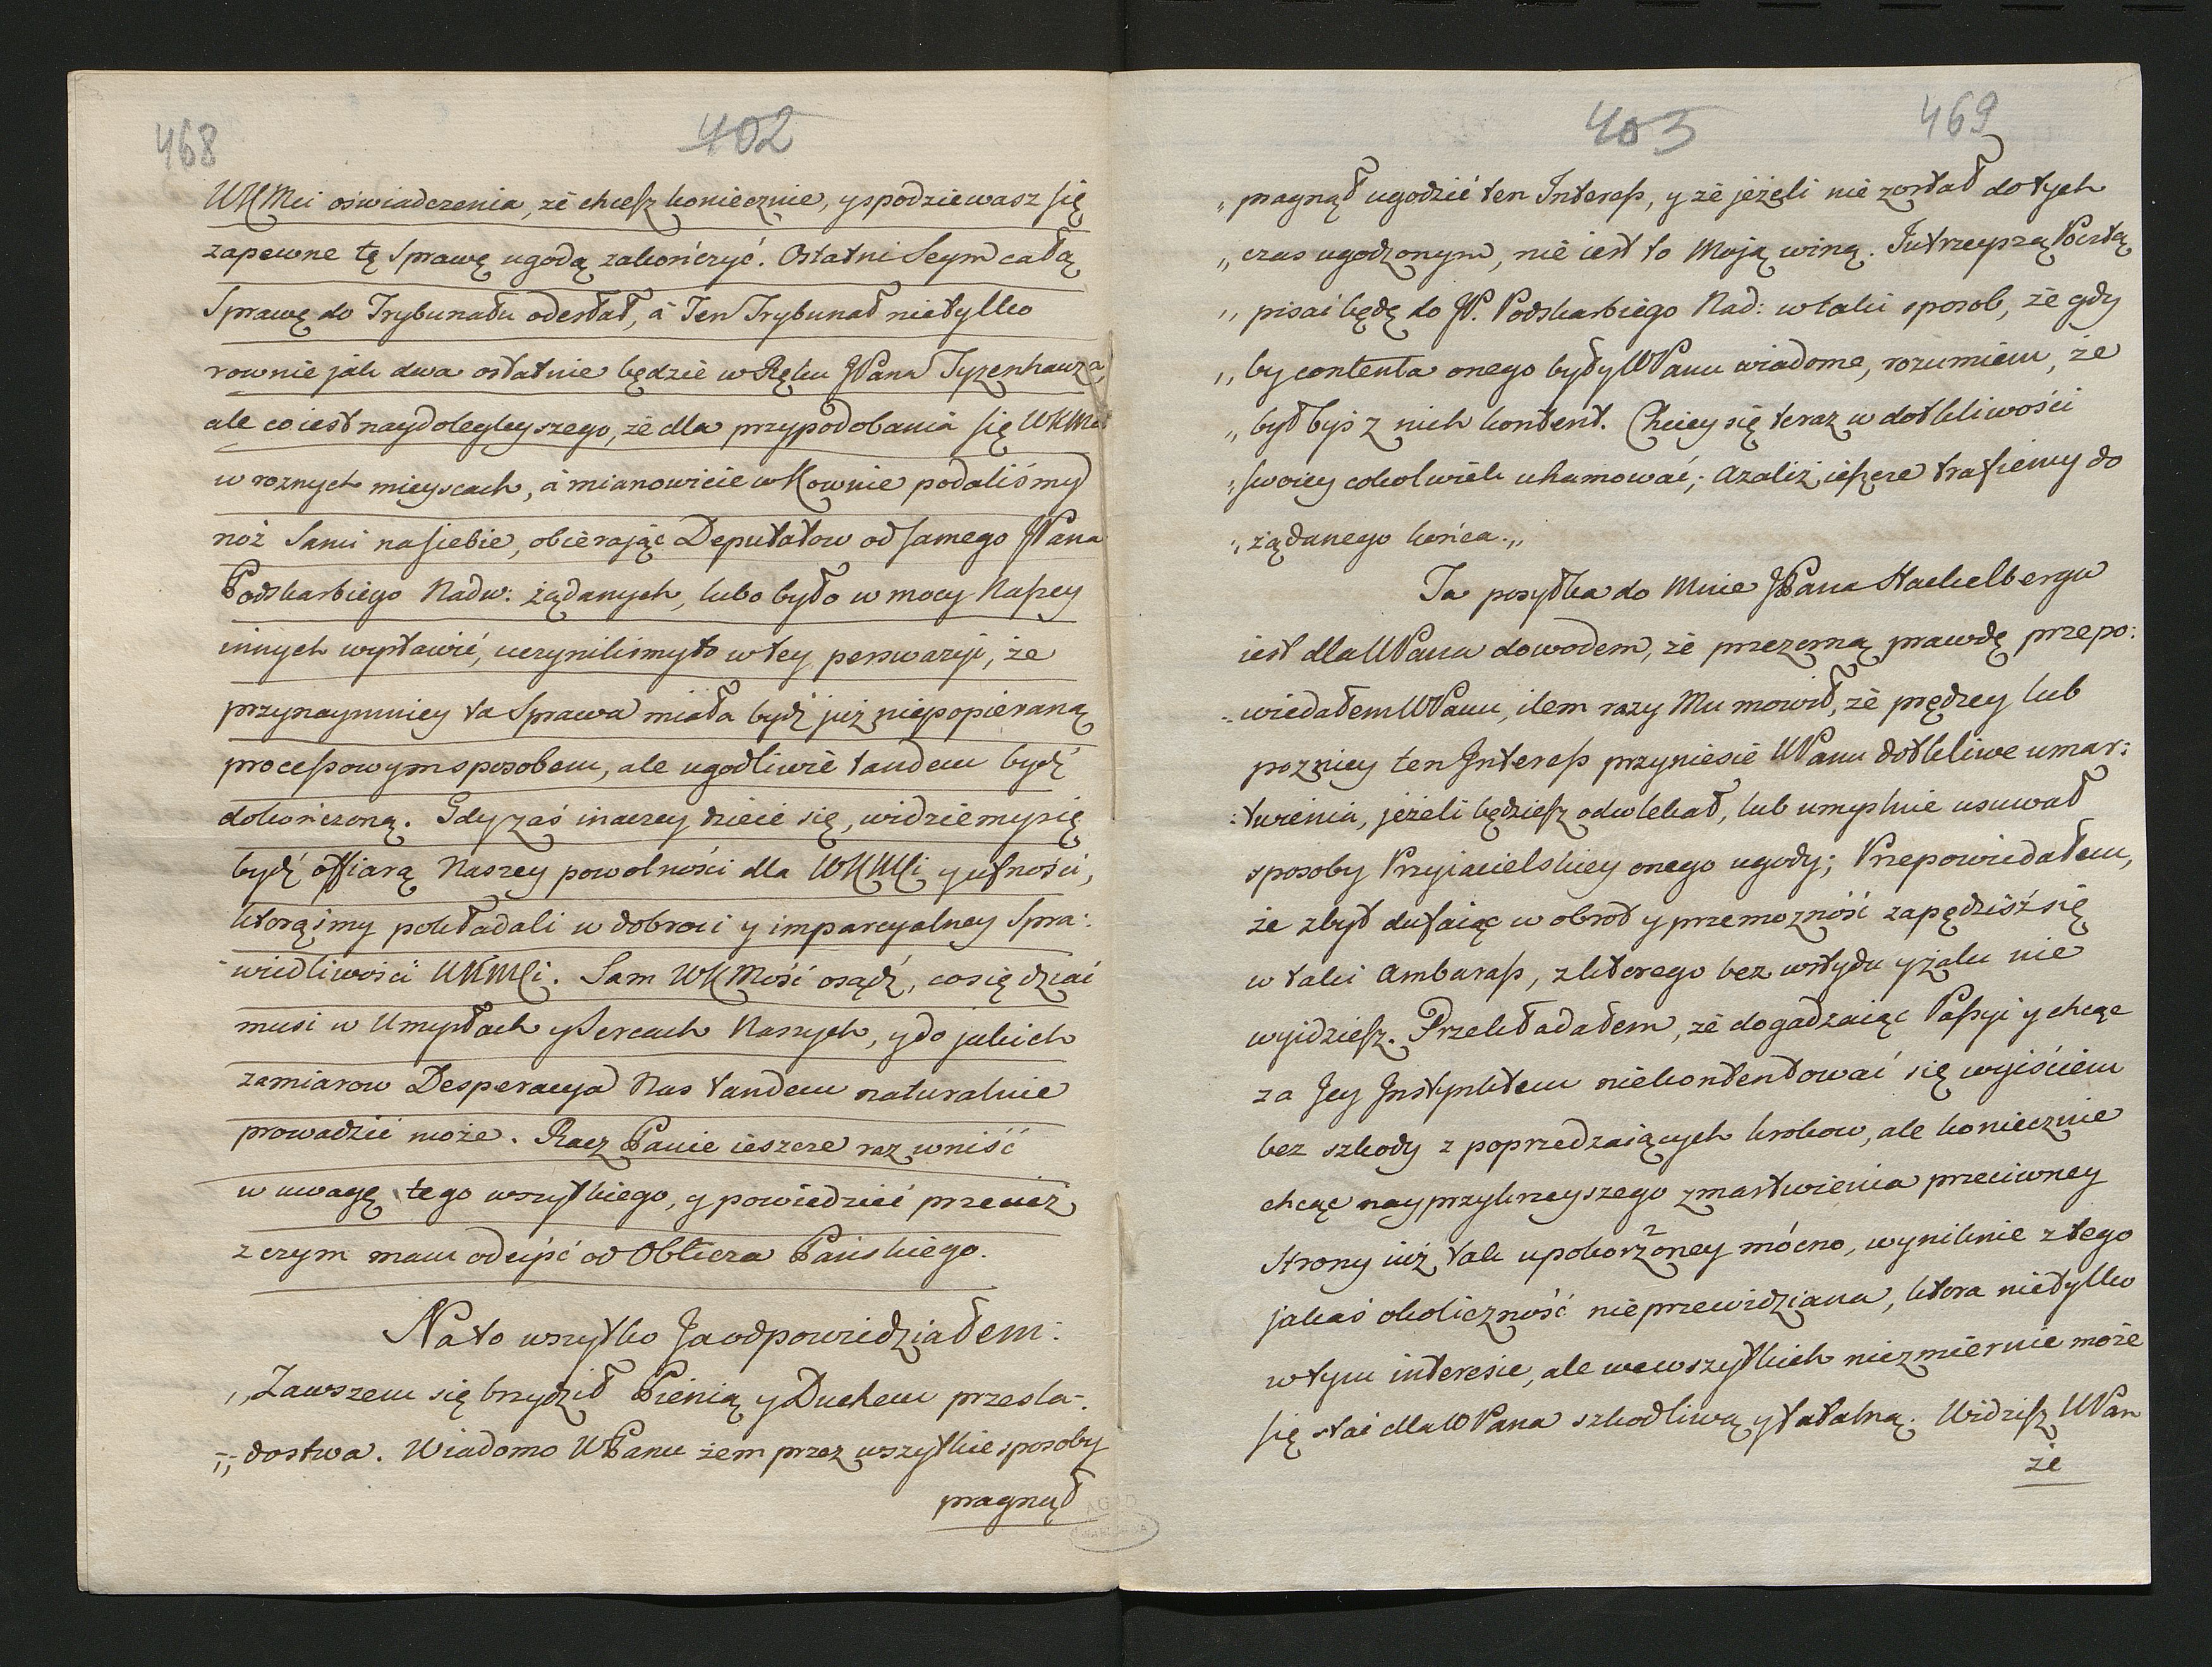 468
402
WKMci oświadczenia, że chcesz koniecznie, y spodziewasz się
zapewne tę Sprawę ugodą zakończyć. Ostatni Seym całą
Sprawę do Trybunału odesłał, á Ten Trybunał nietylko
rownie jak dwa ostatnie będzie w Ręku JPana Tyzenhauza,
ale co iest naydolegleyszego, że dla przypodobania się WKMci
w roznych mieyscach, á mianowicie w Kownie podaliśmy
noż Sami na siebie, obierając Deputatow od samego JPana
Podskarbiego Nadw: żądanych, lubo było w mocy Naszey
innych wystawić, uczyniliśmy to w tey perswazyi, że
przynaymniey ta Sprawa miała bydź już niepopieraną
processowym sposobem, ale ugodliwie tandem bydź
dokończoną. Gdy zaś inaczey dzieie się, widziemy się
bydź offiarą Naszey powolności dla WKMCi y ufności,
ktorąsmy pokładali w dobroci y imparcyalney Spra:
-wiedliwości WKMCi. Sam WKMość osądź, co się dziać
musi w Umysłach y Sercach Naszych, y do jakich
zamiarow Desperacya Nas tandem naturalnie
prowadzić może. Racz Panie ieszcze raz wniść
w uwagę tego wszystkiego, y powiedzieć przecież
z czym mam odeiść od Oblicza Pańskiego.
Na to wszytko Ja odpowiedziałem:
„Zawszem się brzydził Pienią y Duchem przesla-
„-dostwa. Wiadomo WPanu żem przez wszytkie sposoby
pragnął
403
469
„pragnął ugodzić ten Interess, y że jeżeli nie został do tych
„czas ugodzonym, nie iest to Moją winą. Jutrzeyszą Pocztą
„pisać będę do JP. Podskarbiego Nad: w taki sposob, że gdy
„by contenta onego były WPanu wiadome, rozumiem, że
„był byś z nich kontent. Chciey się teraz w dotkliwości
„swoiey cokolwiek uhamować; azaliż ieszcze trafiemy do
„żądanego końca.„
Ta posyłka do Mnie JPana Stackelberga
iest dla WPana dowodem, że przezemną prawdę przepo:
-wiedałem WPanu, ilem razy Mu mowił, że prędzey lub
poznicy ten Interess przyniesie WPanu dotkliwe umar:
:twienia, jeżeli będziesz odwlekał, lub umyslnie usuwał
sposoby Przyiacielskiey onego ugody; Przepowiedałem,
że zbyt dufaiąc w obrot y przemozność zapędziśż się
w taki Ambarass, z ktorego bez wstydu y żalu nie
wyidziesz. Przekładałem, że dogadzaiąc Passyi y chcąc
za Jey Instynktem niekontentować się wyiściem
bez szkody z poprzedzaiących krokow, ale koniecznie
chcąc nayprzykrzeyszego zmartwienia przeciwney
Strony iuż tak upokorzoney mócno, wyniknie z tego
jakaś okoliczność nieprzewidziana, ktora nietylko
w tym interesie, ale we wszystkich niezmiernie może
się stać dla WPana szkodliwą y fatalną. Widzisz WPan
że